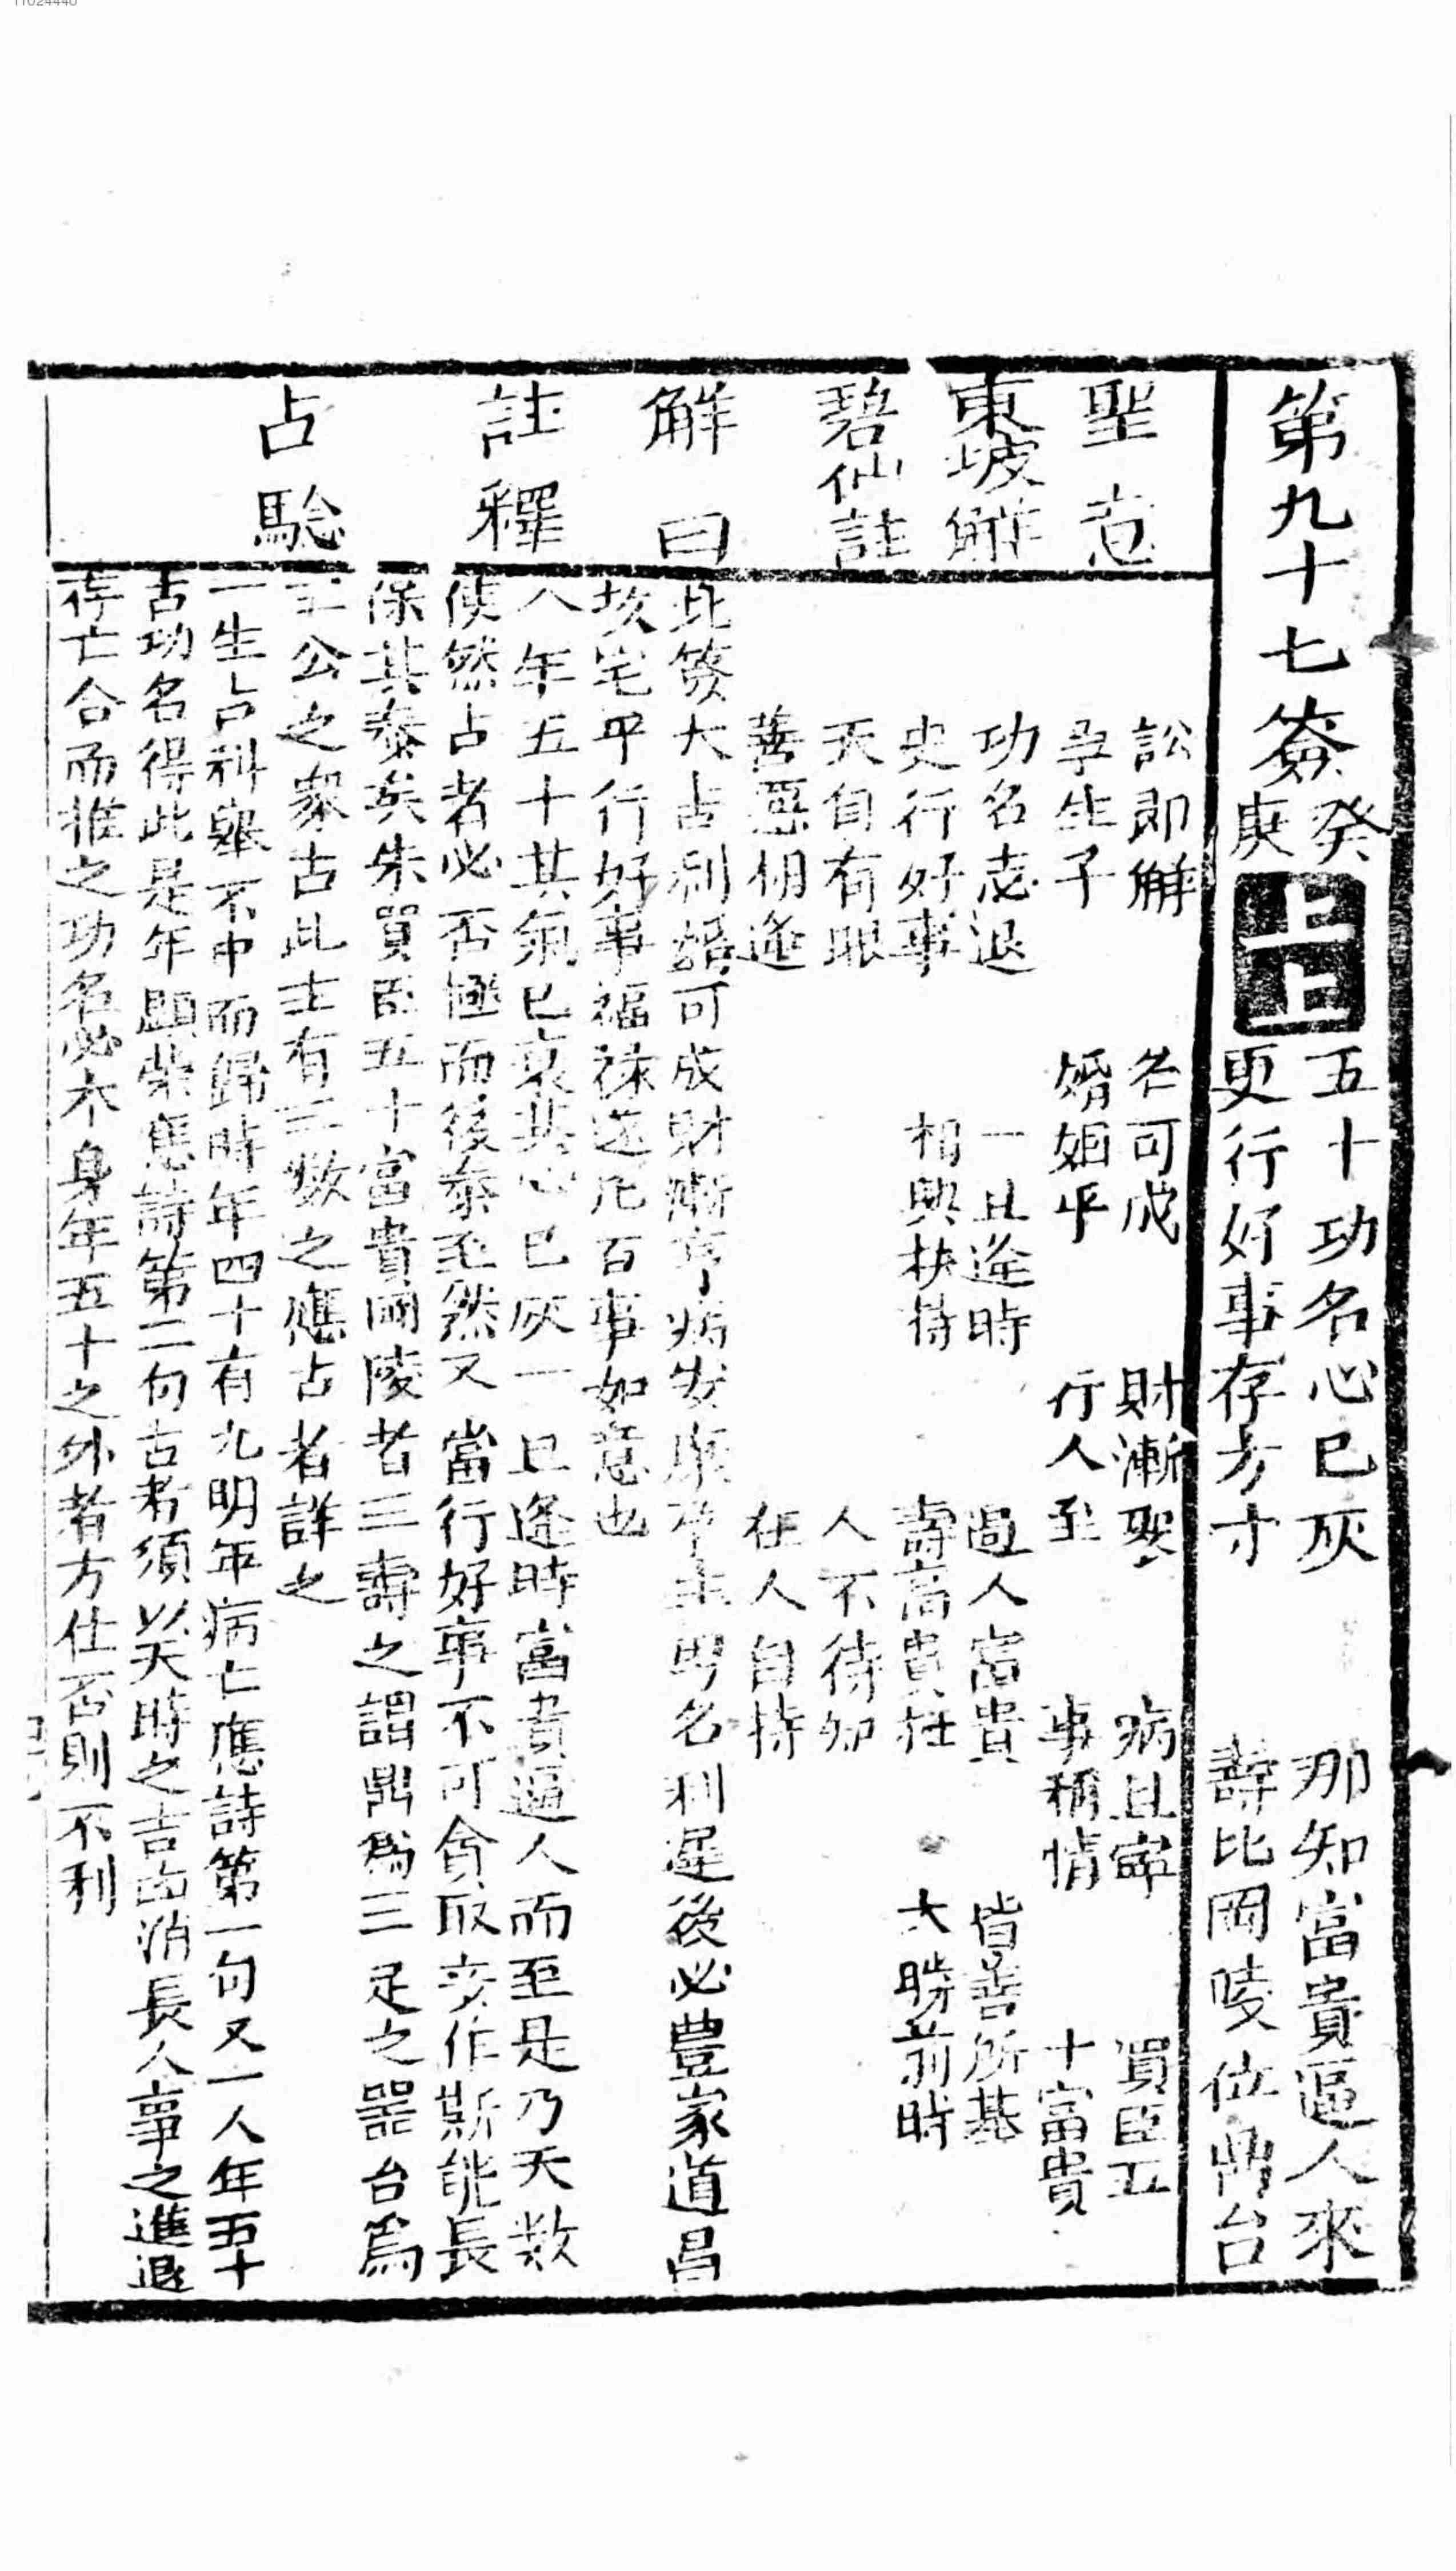 11024440
第九十七簽 癸庚 上上
五十功名心已灰 那知富貴逼人來
更行好事存方寸 壽比岡陵位鼎台
聖意
訟即解 名可成 財漸聚 病且寧 買臣五
孕生子 婚姻平 行人至 事稱情 十富貴
東坡解
功名志退 一旦逢時 逼人富貴 皆善所基
史行好事 相與扶持 壽高貴在 大勝前時
碧仙註
天自有眼 人不待知
善惡相逢 在人自持
解曰
此簽大吉利婚可成財漸亨病安康孕生男名利遲後必豊家道昌
坟宅平行好事福祿進凡百事如意也
註釋
人年五十其氣已衰其心已灰一旦逢時富貴逼人而至是乃天数
使然占者必否極而後泰至然又當行好事不可貪取妄作斯能長
保其泰矣朱買臣五十富貴岡陵者三壽之謂鼎為三足之器台爲
三公之象占此士有三数之應占者詳之
占驗
一生占科舉不中而歸時年四十有九明年病亡應詩第一句又一人年五十
占功名得此是年顯榮應詩第二句占者須以天時之吉凶消長人事之進退
存亡合而推之功名必本身年五十之外者方仕否則不利